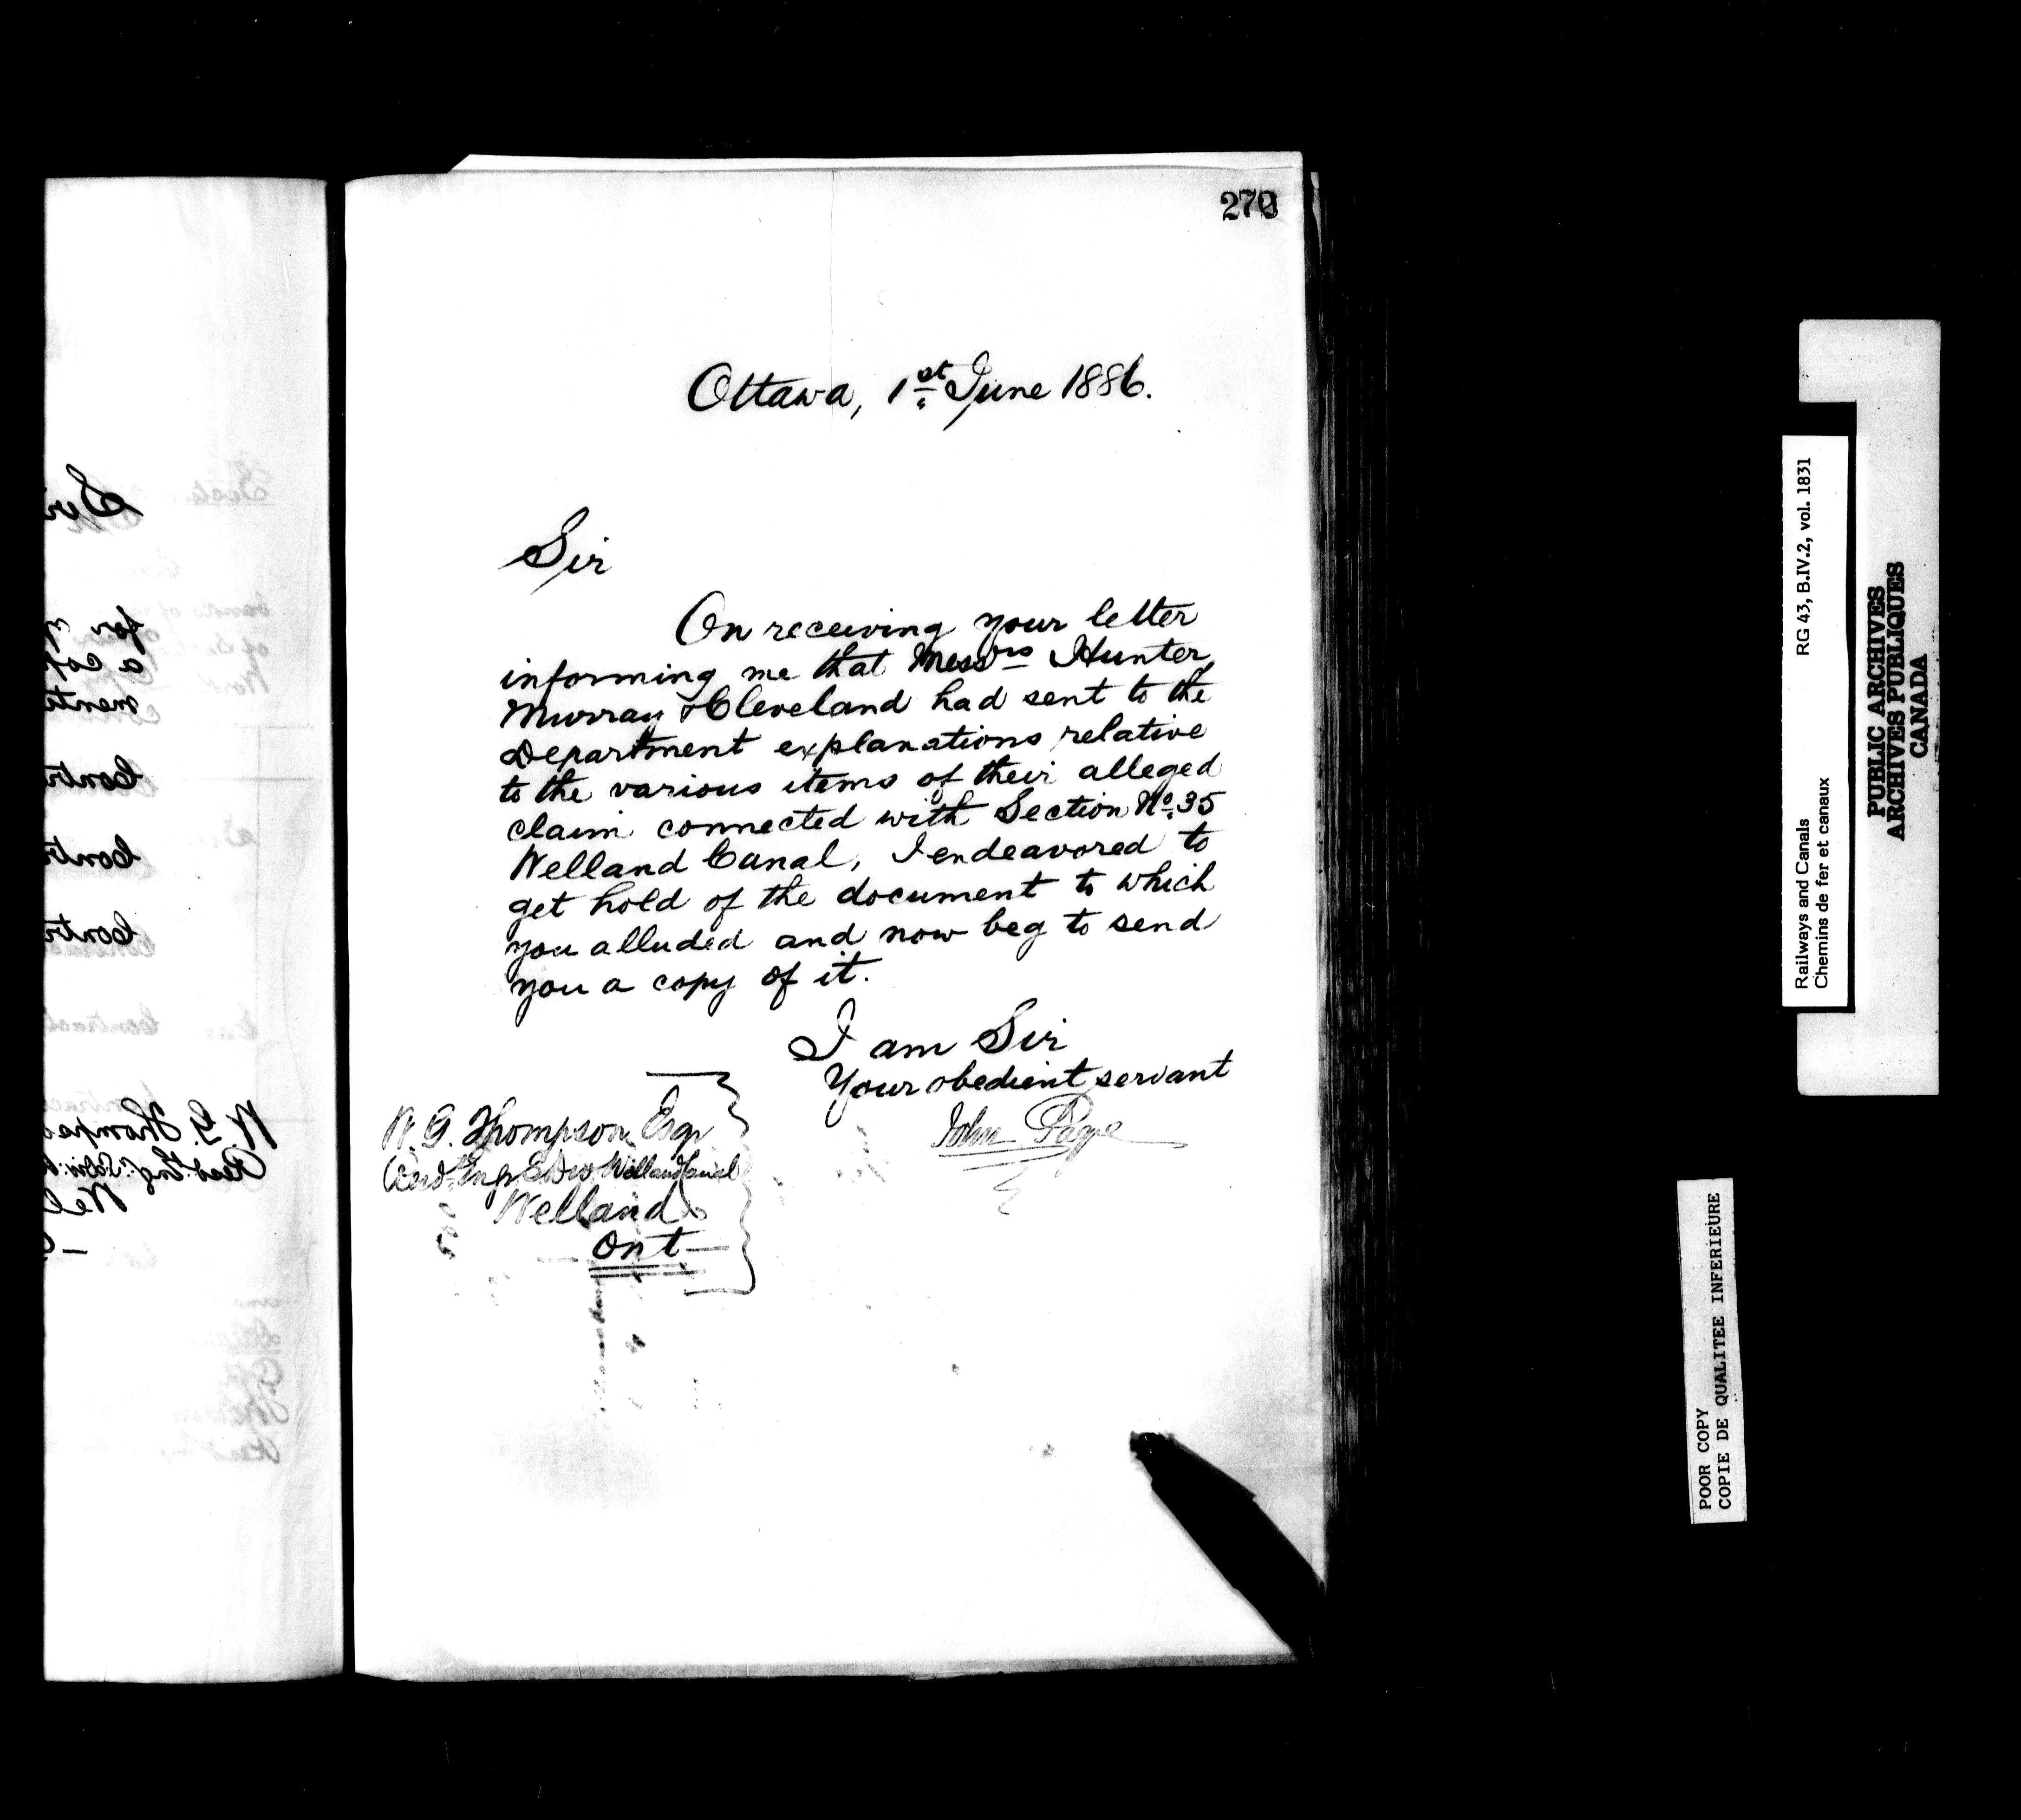 270
Ottawa, 1st June 1886.
Sir
On receiving your letter
informing me that Messrs Hunter,
Murray & Cleveland had sent to the
Department explanations relative
to the various items of their alleged
claim connected with Section No. 35
Welland Canal, I endeavored to
get hold of the document to which
you alluded and now beg to send
you a copy of it.
I am Sir
Your obedient servant
John Page
W. G. Thompson Esqr
Resd. Engr. S. Div. Welland Canal
Welland
Ont
Railways and Canals RG 43, B.IV.2, vol. 1831
Chemins de fer et canaux
PUBLIC ARCHIVES
ARCHIVES PUBLIQUES
CANADA
POOR COPY
COPIE DE QUALITEE INFERIEURE